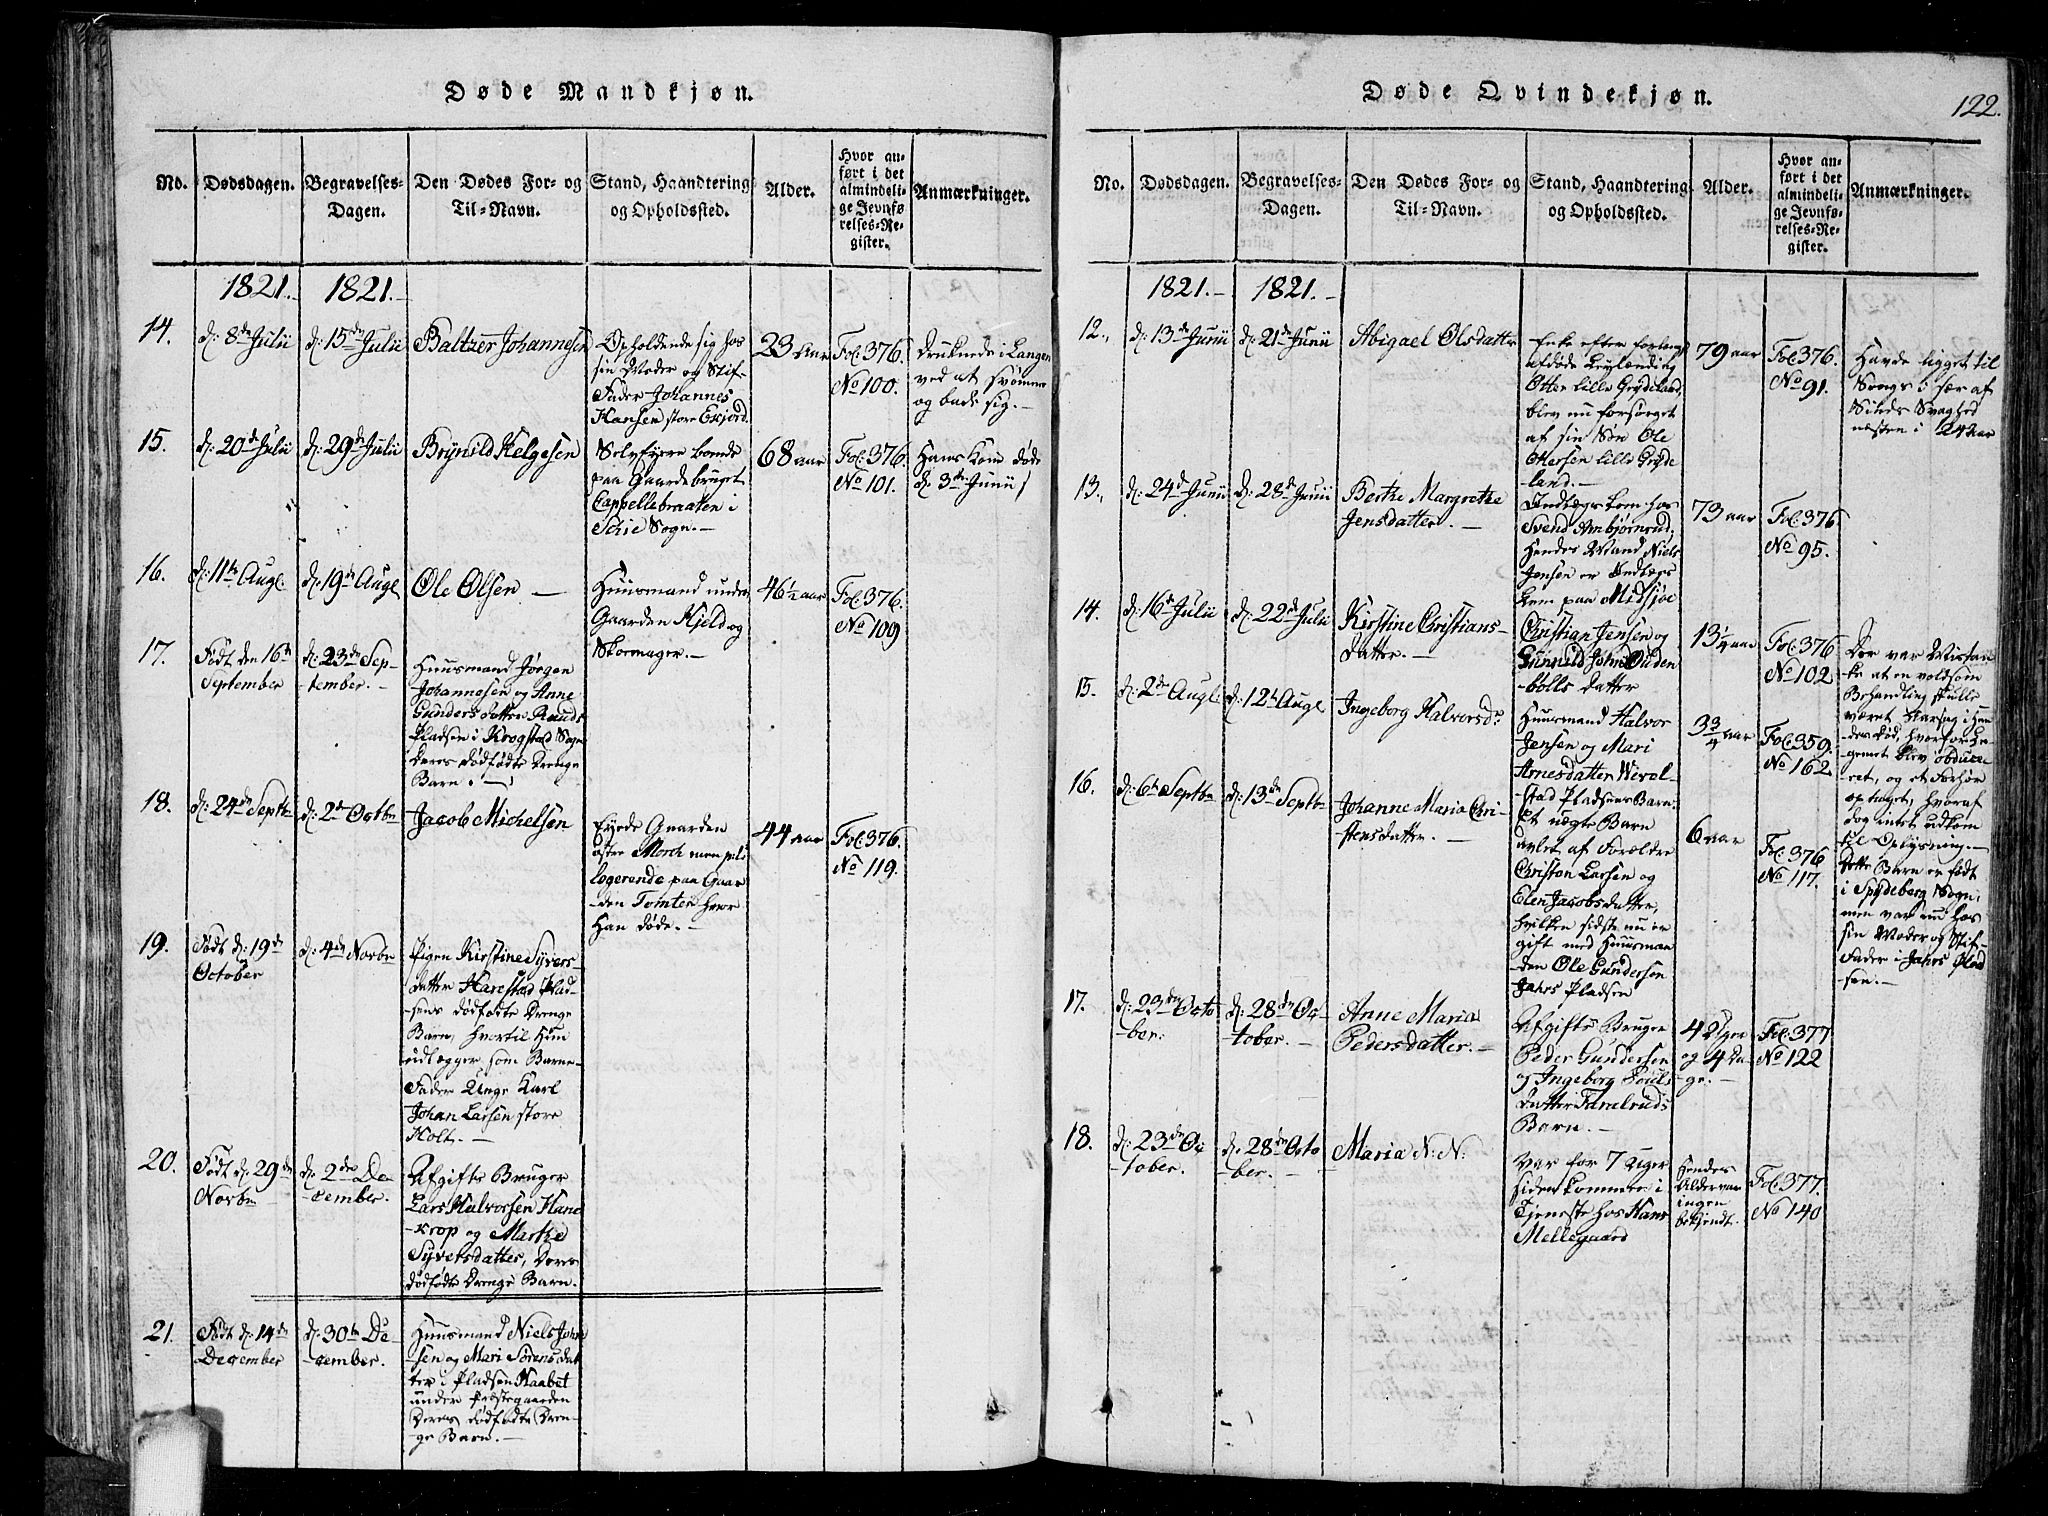 Døde Mandkjøn.
No.
Dødsdagen.
Begravelses-
Dagen.
Den Dødes For- og
Til-Navn.
Stand, Haandtering
og Opholdssted.
Alder.
Hvor an-
ført i det
almindeli-
ge Jevnfø
relses-Re-
gister.
Anmærkninger.
1821.-
1821.-
14.
d: 8de Julii
d: 15de Julii
Baltzer Johannesen
Opholdende sig hos
sin Moder og Stif-
Fader Johannes
Hansen store Evjord
23 aar
Fol: 376.
No 100.
Druknede i Langen
ved at svømme
og bade sig.-
15.
d: 20de Julii
d: 29de Julii
Brynild Helgesen
Selveyere boende
paa Gaardebruget
Cappellebraaten i
Schie Sogn.-
68 aar
Fol: 376.
No 101.
Hans Kone døde
d: 3die Junii
16.
d: 11te Augl.
d. 19de Augl
Ole Olsen.-
Huusmand under
Gaarden Kjeld og
Skomager.-
46½ aar
Fol: 376.
No 109
17.
Født den 16de
September
d: 23de Sep-
tember.-
Huusmand Jørgen
Johannesen og Anne
Gunders datter Rauds
Pladsen i Krogstad Sogn
deres dødfødte Drenge
Barn.-
18.
d: 24de Septb
d: 2de Octbr
Jacob Michelsen
Eyede Gaarden
østre Morch men
logerende paa Gaar
-den Tomter hvor
Han døde.-
44 aar
Fol: 376.
No 119.
19.
Født d: 19de
October
d: 4de Novbr
Pigen Kirstine Syvers-
datter Harestad Plad-
sens dødfødte Drenge
Barn, hvortil Hun
udlægger som Barne-
Fader Unge Karl
Johan Larsen store
Holt.-
20.
Født d. 29de
Novbr
d: 2den De-
-cember.
Afgifts Bruger
Lars Halvorsen Hane
-krop og Marthe
Syversdatter, deres
dødfødte Drenge Barn.
21.
Født d: 14de
December
d: 30te De-
-cember.
Huusmand Niels Johan
-sen og Mari Sørens dat
ter i Pladsen Haabet
under Præstegaarden
deres dødfødte Dren-
ge Barn.-
Døde Qvindekjøn.
122.
No.
Dødsdagen.
Begravelses-
Dagen.
Den Dødes For- og
Til-Navn.
Stand, Haandtering
og Opholdssted.
Alder.
Hvor an-
ført i det
almindeli-
ge Jevnfø-
relses-Re-
gister.
Anmærkninger.
1821.-
1821.-
12.,
d: 13de Junii
d: 21de Junii
Abigael Olsdatter
Enke efter forlængst
afdøde Leylænding
Otter lille Grydeland,
blev nu forsørget
af sin Søn Ole
Ottersen lille Gryde
land.-
79 aar
Fol: 376.
No 91.
Havde ligget til
Sengs i sær af
Sinds Svaghed
næsten i 24 Aar
13.,
d: 24de Junii
d: 28de Junii
Berthe Margrethe
Jensdatter.-
Indlægs kone hos
Svend Ambjørnrud,
Hendes Mand Niels
Jensen er Indlægs
lem paa Midsjøe
73 aar
Fol: 376
No 95.
14.
d: 16de Julii
d: 22de Julii
Kirstine Christians-
datter.-
Christian Jensen og
Gunnild Johns Ouden
-bølls datter
13¼ aar
Fol: 376
No 102
Der var Mistan-
ke at en voldsom
Behandling skulle
været Aarsag i Hen
des død, hvorfor Le-
gemet blev obduce-
ret, og et Forhør
optaget, hvoraf
dog intet udkom
til Oplysning.-
15.
d: 2de Augl:
d: 12te Augl
Ingeborg Halvorsdr.
Huusmand Halvor
Jensen og Mari
Arnesdatter
-stad Pladsens Barn.
3¾ aar
Fol: 359.
No 162
16.
d: 6te Septbr
d: 13de Septbr
Johanne Maria Chri-
stensdatter.-
Et uægte Barn
avlet af Forældre
Christen Larsen og
Elen Jacobs datter,
hvilken sidste nu er
gift med Huusman
den Ole Gundersen
Jahrs Pladsen
6 aar
Fol: 376
No 117.
Dette Barn er født
i Spydeberg Sogn,
men var nu hos
sin Moder og Stif-
Fader i Jahrs Plad
sen.-
17.
d: 23de Octo
-ber.
d: 28de Oc-
tober.-
Anne Maria
Pedersdatter.-
Afgifts Bruger
Peder Gundersen
og Ingeborg Pouls
datter
Barn.-
4 Uger
og 4 Da-
ge.-
Fol: 377
No 122
18.
d: 23de Oc
-tober.
d. 28de Octo
-ber.-
Maria N: N:
Var for 7 Uger
siden kommen i
Tjeneste hos Hans
Mellegaard
Hendes
Alder var
ingen
bekjendt.
Fol: 377.
No 140